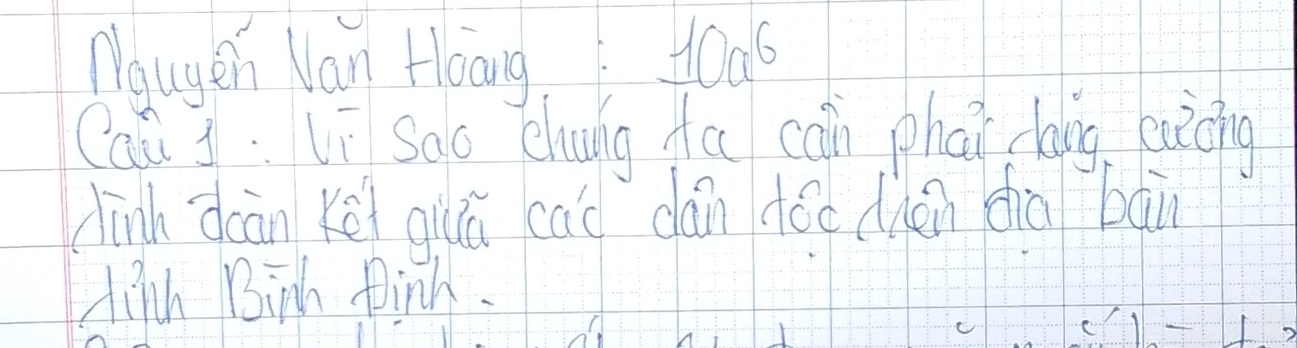 Nguyễn Văn Hoàng : 10a6
Câu 1 : Vì sao chúng ta cần phải tăng cường
tình đoàn kết giữa các dân tộc trên địa bàn
tỉnh Bình Định.